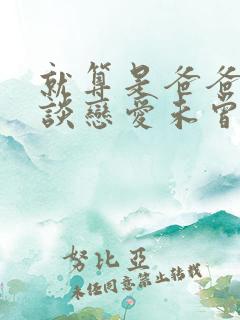 就算是爸爸
談戀愛未曾
努比亞
未經同意禁止轉載